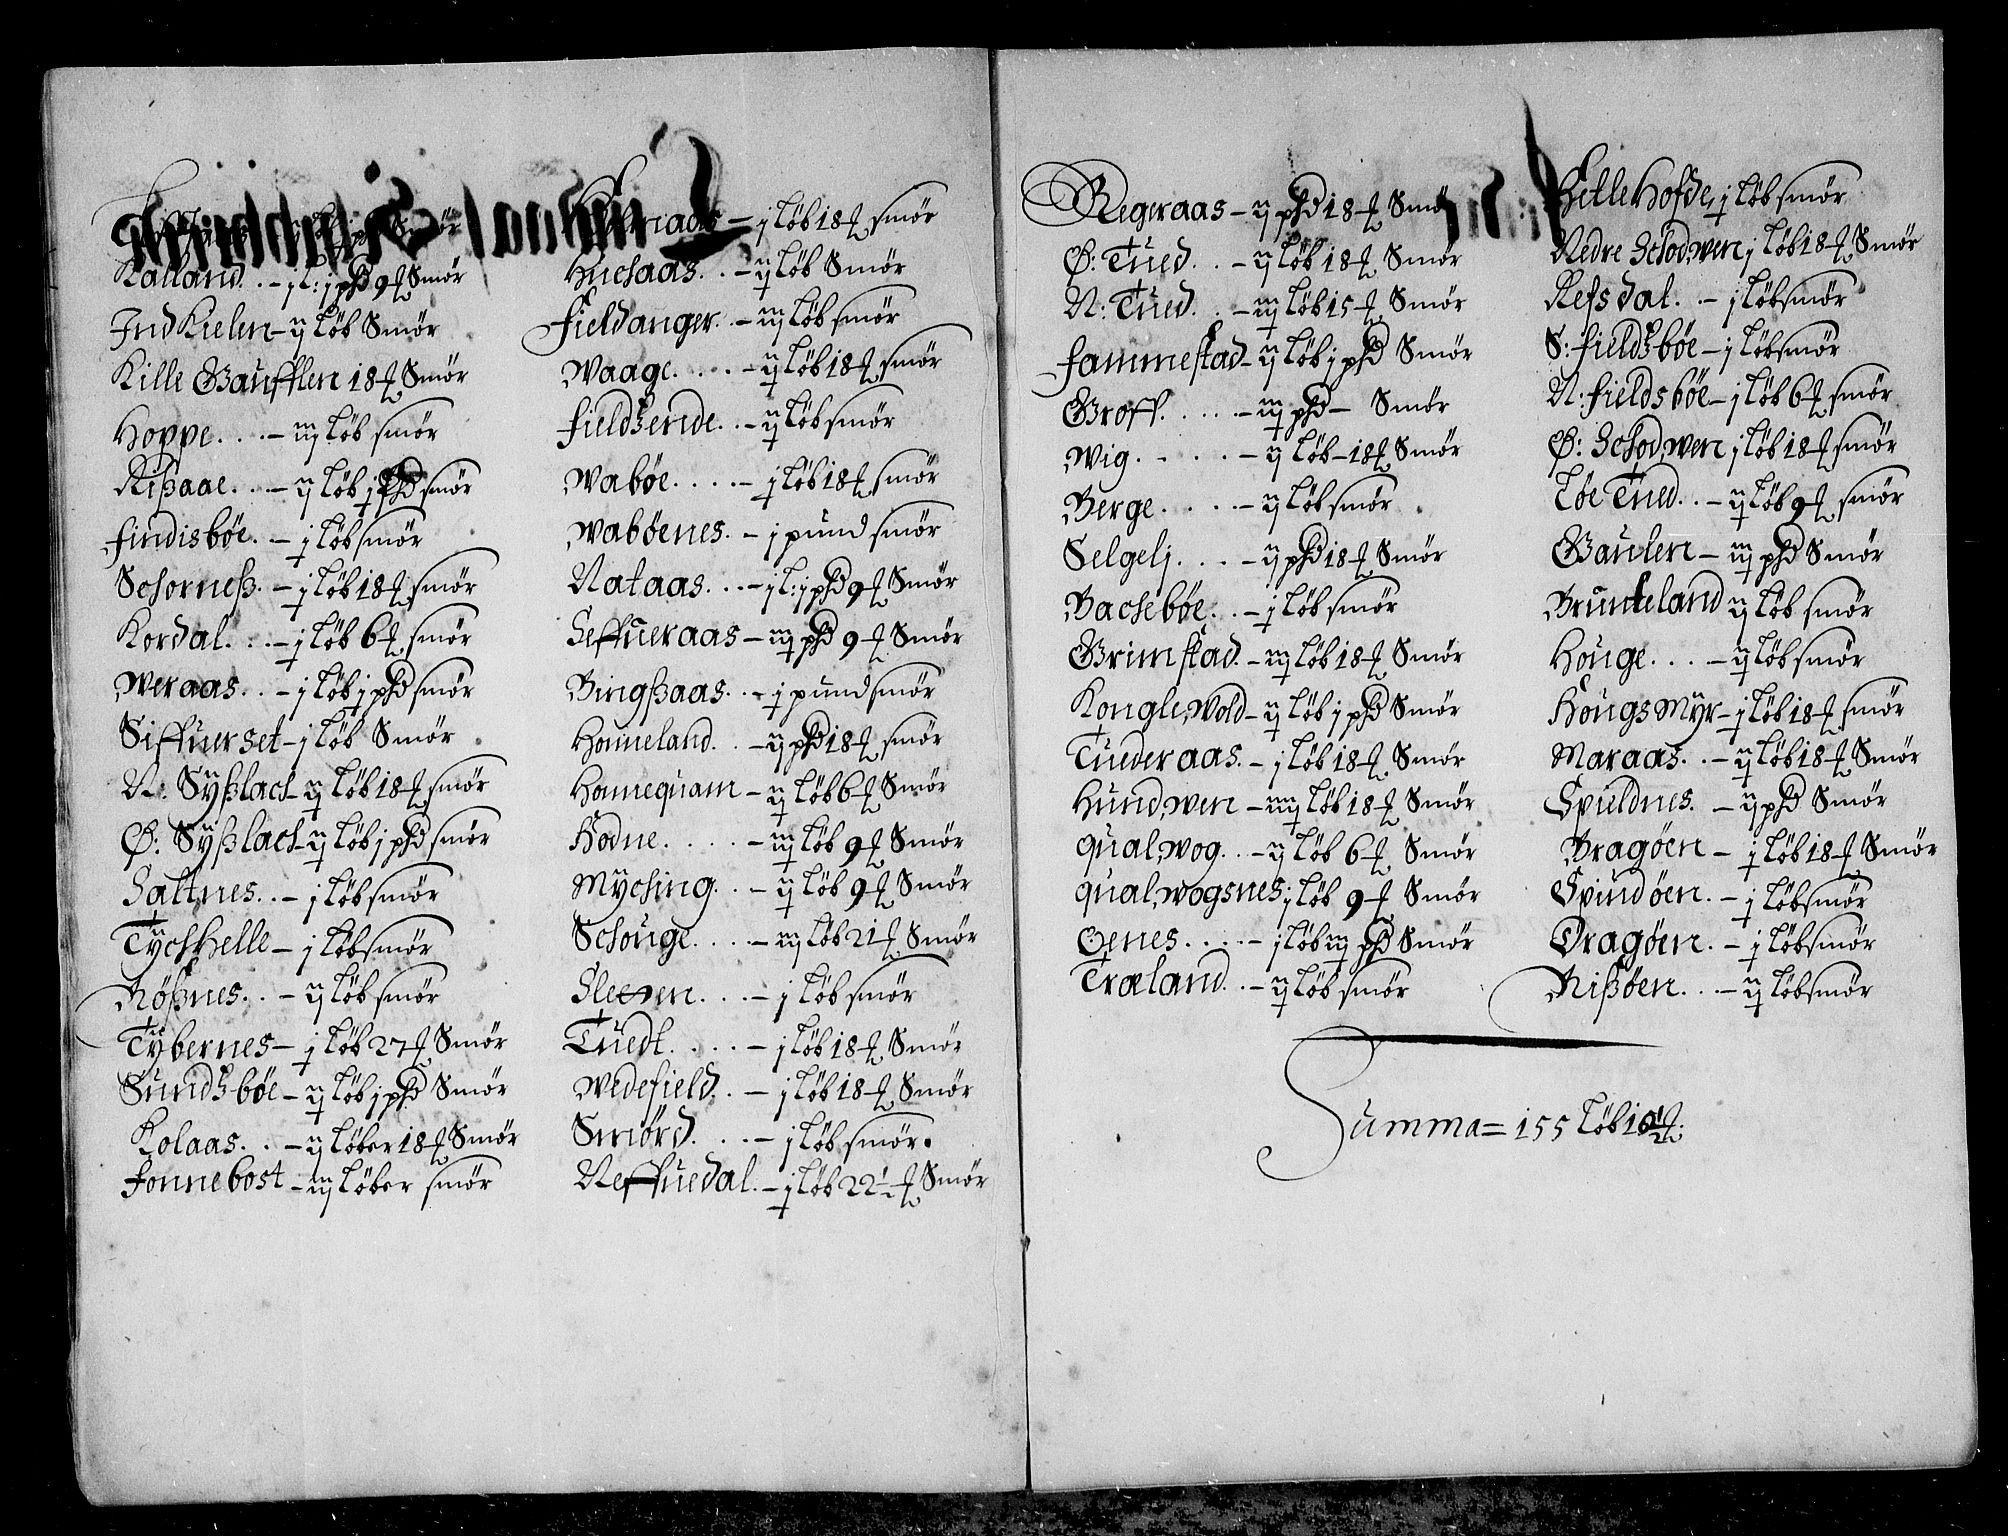 Kalland. . – j l: j pßd 9 ℔ Smör
Ind Kielen – ij Löb Smör
Kille Gaufflen 18 ℔ Smör
Hoppe. . . . – iij Löb smör
Rißaae. . . – ij löb j pßd smör
findisböe. – j löb smör
Schorneß. – j löb 18 ℔ smör
Kordal. . . – j löb 6 ℔ smör
Weraas. . – j löb j pßd smör
Siffuerset – j löb Smör
N: Sÿßlach – ij löb 18 ℔ smör
Ø: Sÿßlach – ij löb j pßd smör
Saltnes. . – j löb smör
Tÿchhelle – j löb smör
Rößnes. . – ij löb smör
Tÿbernes – j löb 27 ℔ Smör
Sundsböe – ij löb j pßd Smör
Kolaas. . . – ij löber 18 ℔ Smör
fonnebost – iij löber smör
– j löb 18 ℔ smör
Huchaas. . – ij löb Smör
fieldanger. . – iij löb smör
Waage. . . . . – ij löb 18 ℔ smör
fieldsende. . – ij löb smör
Waböe. . . . – j löb 18 ℔ smör
Waböenes. – j pund smör
Nataas. . . – j l: j pßd 9 ℔ Smör
Seffueraas – iij pßd 9 ℔ Smör
Bingßaas. . – j pund smör
Honneland. . – ij pßd 18 ℔ smör
Honnequam – ij löb 6 ℔ Smör
Hodne. . . . . – iij löb 9 ℔ Smör
Mÿching. . – ij löb 9 ℔ Smör
Schouge. . . . – iij löb 21 ℔ Smör
Sletten. . . . – j löb smör
Tuedt. . . . . – j löb 18 ℔ Smör
Wedefield. . – j löb 18 ℔ Smör
Smörd. . . . – j löb smör.
Neffuedal. – j löb 22½ ℔ Smör
Regeraas – ij pßd 18 ℔ Smö
Ø: Tued. . . – ij löb 18 ℔ Smör
N: Tued. . – iij löb 15 ℔ Smör
fammestad – ij löb j pßd Smör
Groff. . . . . – iij pßd – Smör
Wig. . . . . – ij löb – 18 ℔ Smör
Berge. . . . . – ij löb smör
Selgelj. . . . – ij pßd 18 ℔ Smör
Bacheböe. . – j löb smör
Grimstad. – iij löb 18 ℔ Smör
Kongle,wold – ij löb j pßd Smör
Tuederaas. – j löb 18 ℔ Smör
Hund,wen – iiij löb 18 ℔ Smör
qual,wog. . – ij löb 6 ℔ Smör
qual,wogsnes j löb 9 ℔ Smör
Øenes. . . . – j löb iij pßd Smör
Træland. . – ij löb smör
HelleHofde, j löb smör
Nedre Schod,wen j löb 18 ℔ Smör
Refsdal. . – j löb smör
S: fieldsböe – j löb smör
N: fieldsböe – j löb 6 ℔ smör
Ø: Schod,wen j löb 18 ℔ smör
Töe Tued. . – ij löb 9 ℔ smör
Gaulen – iij pßd Smör
Bruncheland ij löb smör
Houge. . . . – ij löb smör
HougsMÿr – j löb 18 ℔ smör
Maraas. . – ij löb 18 ℔ Smör
Spieldnes. – ij pßd Smör
Bragöen – j löb 18 ℔ Smör
Spindöen. – j löb smör
Dragöen. – j löb smör
Rißöen. . . – ij löb smör
Summa = 155 Löb